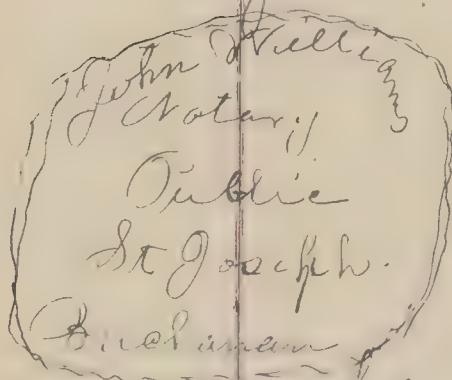 John Williams
Notary
Public
St Joseph.
Buchanan